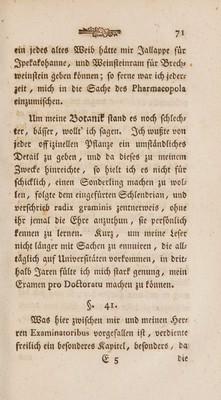 71
ein jedes altes Weib hätte mir Jallappe für
Jpekakohanne, und Weinsteinram für Brech-
weinstein geben können; so ferne war ich jeder-
zeit, mich in die Sache des Pharmacopola
einzumischen.
Um meine Botanik stand es noch schlech-
ter, bässer, wollt' ich sagen. Ich wußte von
jeder offizinellen Pflanze ein umständliches
Detail zu geben, und da dieses zu meinem
Zwecke hinreichte, so hielt ich es nicht für
schicklich, einen Sonderling machen zu wol-
len, folgte dem eingefürten Schlendrian, und
verschrieb radix graminis zentnerweis, ohne
ihr jemal die Ehre anzuthun, sie persönlich
kennen zu lernen. Kurz, um meine Leser
nicht länger mit Sachen zu ennuiren, die all-
täglich auf Universitäten vorkommen, in drit-
halb Jaren fülte ich mich stark genung, mein
Examen pro Doctoratu machen zu können.
§. 41.
Was hier zwischen mir und meinen Her-
ren Examinatoribus vorgefallen ist, verdiente
freilich ein besonderes Kapitel, besonders, da
E 5 die